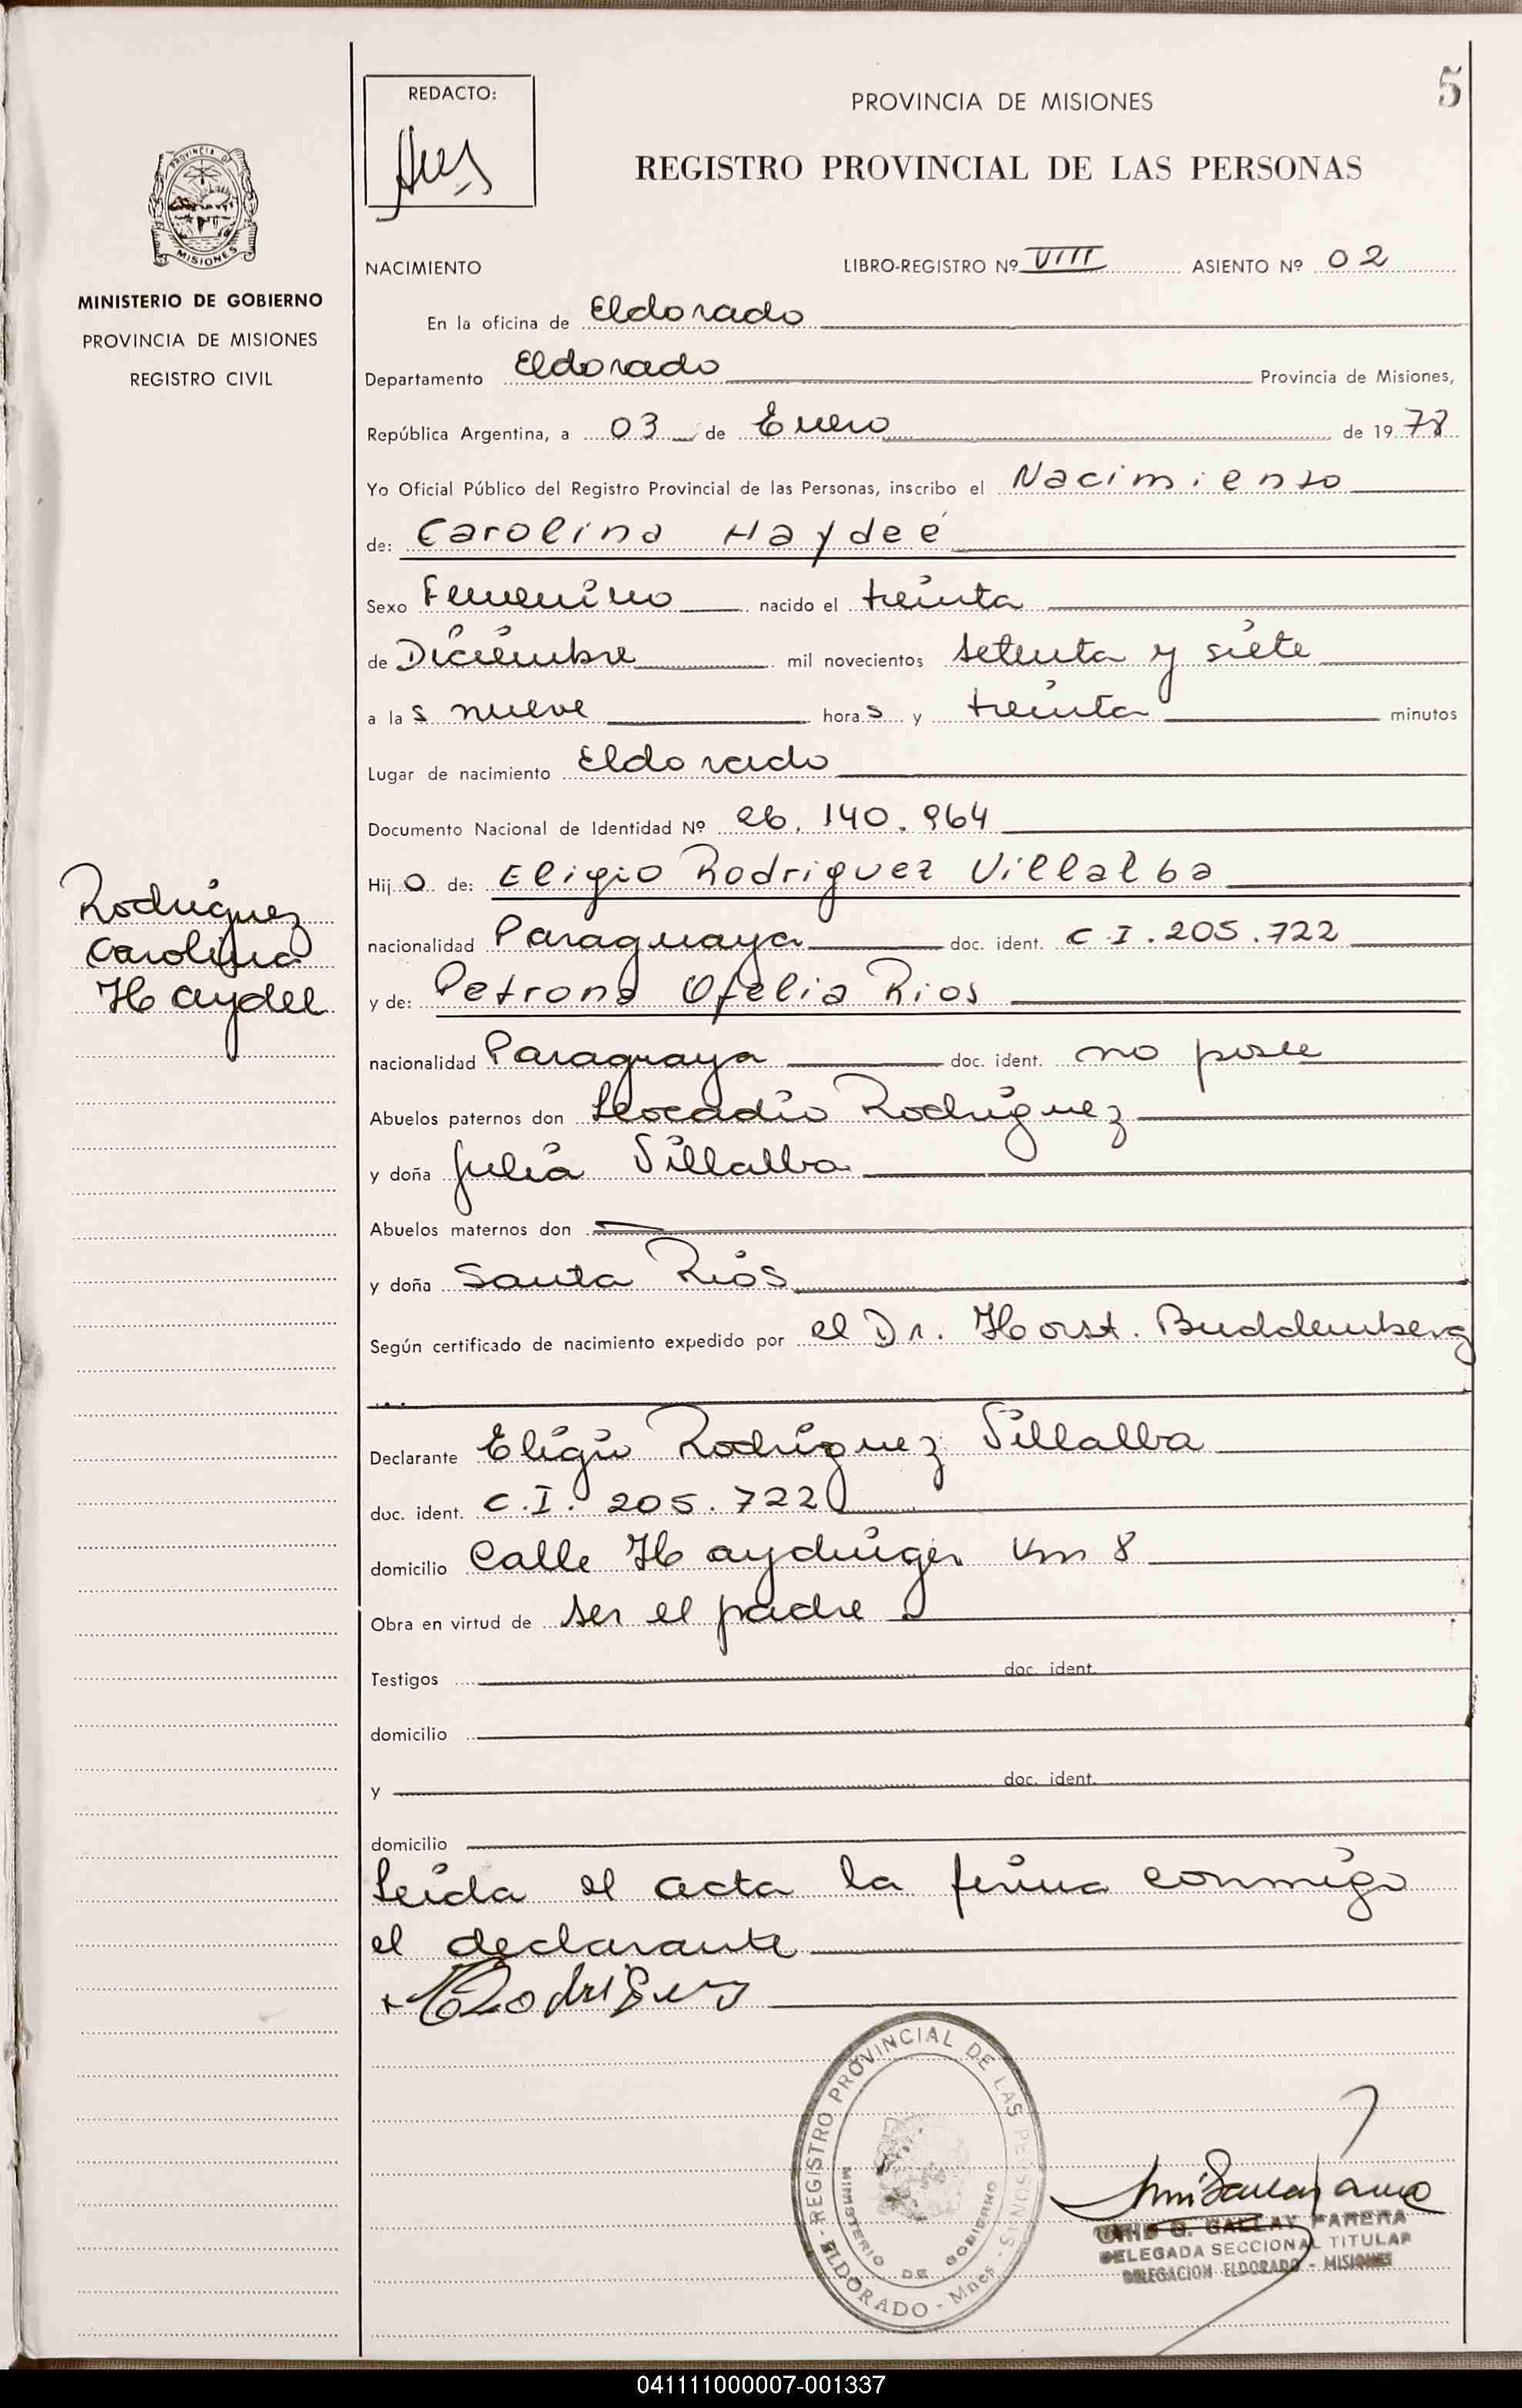 5
REDACTO:
PROVINCIA DE MISIONES
REGISTRO PROVINCIAL DE LAS PERSONAS
PROVINCIA DE
MISIONES
MINISTERIO DE GOBIERNO
PROVINCIA DE MISIONES
REGISTRO CIVIL
NACIMIENTO LIBRO-REGISTRO Nº VIII ASIENTO Nº 02
En la oficina de Eldorado
Departamento Eldorado Provincia de Misiones,
República Argentina, a 03 de Enero de 1978
Yo Oficial Público del Registro Provincial de las Personas, inscribo el Nacimiento
de: Carolina Haydeé
Sexo Femenino nacido el treinta
de Diciembre mil novecientos setenta y siete
a las nueve horas y treinta minutos
Lugar de nacimiento Eldorado
Documento Nacional de Identidad Nº 26.140.964
Hijo de: Eligio Rodriguez Villalba
Rodriguez
Carolina
Haydee
nacionalidad Paraguaya doc. ident. C.I. 205.722
y de: Petrona Ofelia Rios
nacionalidad Paraguaya doc. ident. no posee
Abuelos paternos don Leocadio Rodriguez
y doña Julia Villalba
Abuelos maternos don
y doña Santa Rios
Según certificado de nacimiento expedido por el Dr. Horst. Buddemberg
Declarante Eligio Rodriguez Villalba
doc. ident. C.I. 205.722
domicilio Calle Haydinger Km 8
Obra en virtud de ser el padre
Testigos doc. ident.
domicilio
y doc. ident.
domicilio
Leida el acta la firma conmigo
el declarante
Rodriguez
REGISTRO PROVINCIAL DE LAS PERSONAS - ELDORADO - Mnes -
MINISTERIO DE GOBIERNO
G. GALLAY PARERA
DELEGADA SECCIONAL TITULAR
DELEGACION ELDORADO - MISIONES
041111000007-001337